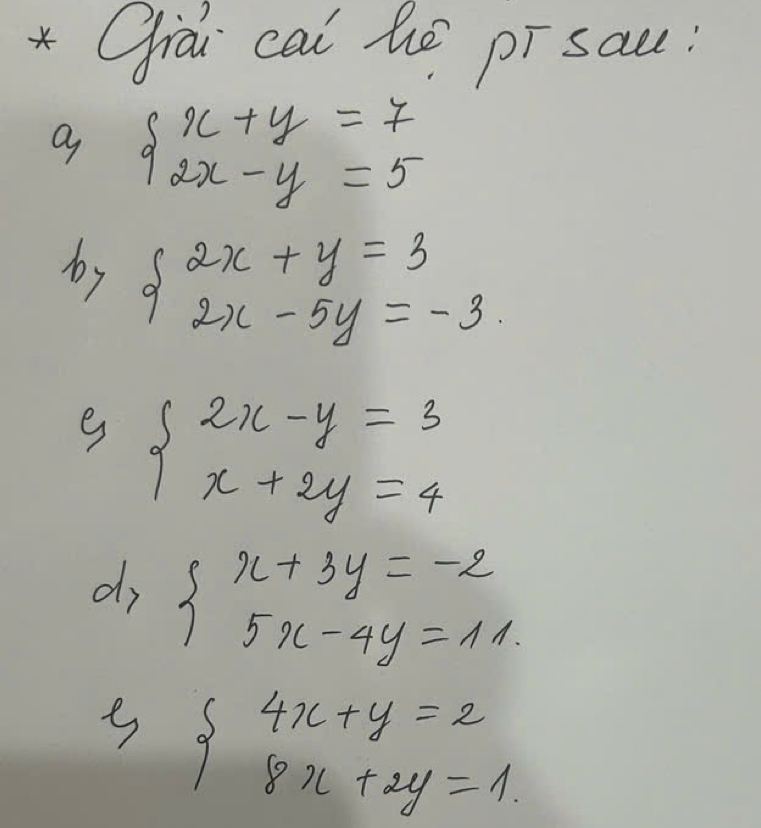 * Giải các hệ pT sau:
a, { x + y = 7
2x - y = 5
b, { 2x + y = 3
2x - 5y = -3.
c, { 2x - y = 3
x + 2y = 4
d, { x + 3y = -2
5x - 4y = 11.
e, { 4x + y = 2
8x + 2y = 1.